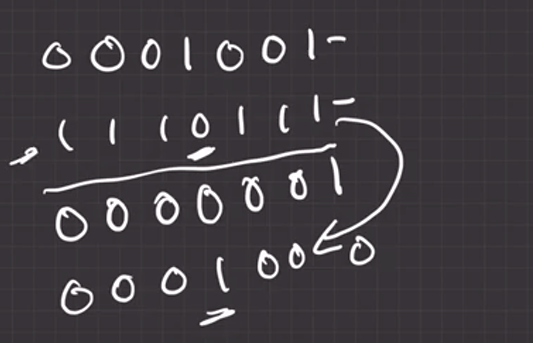 0 0 0 1 0 0 1 -
1 1 1 0 1 1 1 -
0 0 0 0 0 0 1
0 0 0 1 0 0 0